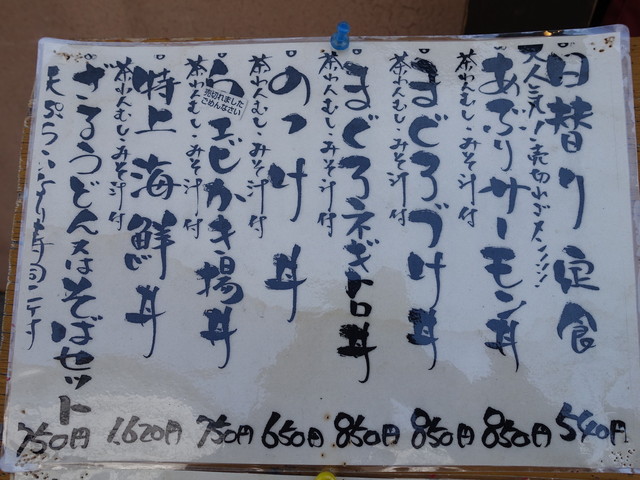 日替り定食 540円
大人気!売切れゴメン!!!
あぶりサーモン丼 850円
茶わんむし・みそ汁付
まぐろづけ丼 850円
茶わんむし・みそ汁付
まぐろネギトロ丼 850円
茶わんむし・みそ汁付
のっけ丼 650円
茶わんむし・みそ汁付
エビかき揚丼 750円
売切れました
ごめんなさい
茶わんむし・みそ汁付
特上海鮮丼 1,620円
茶わんむし・みそ汁付
ざるうどん又はそばセット 750円
天ぷら・いなり寿司二ケ付